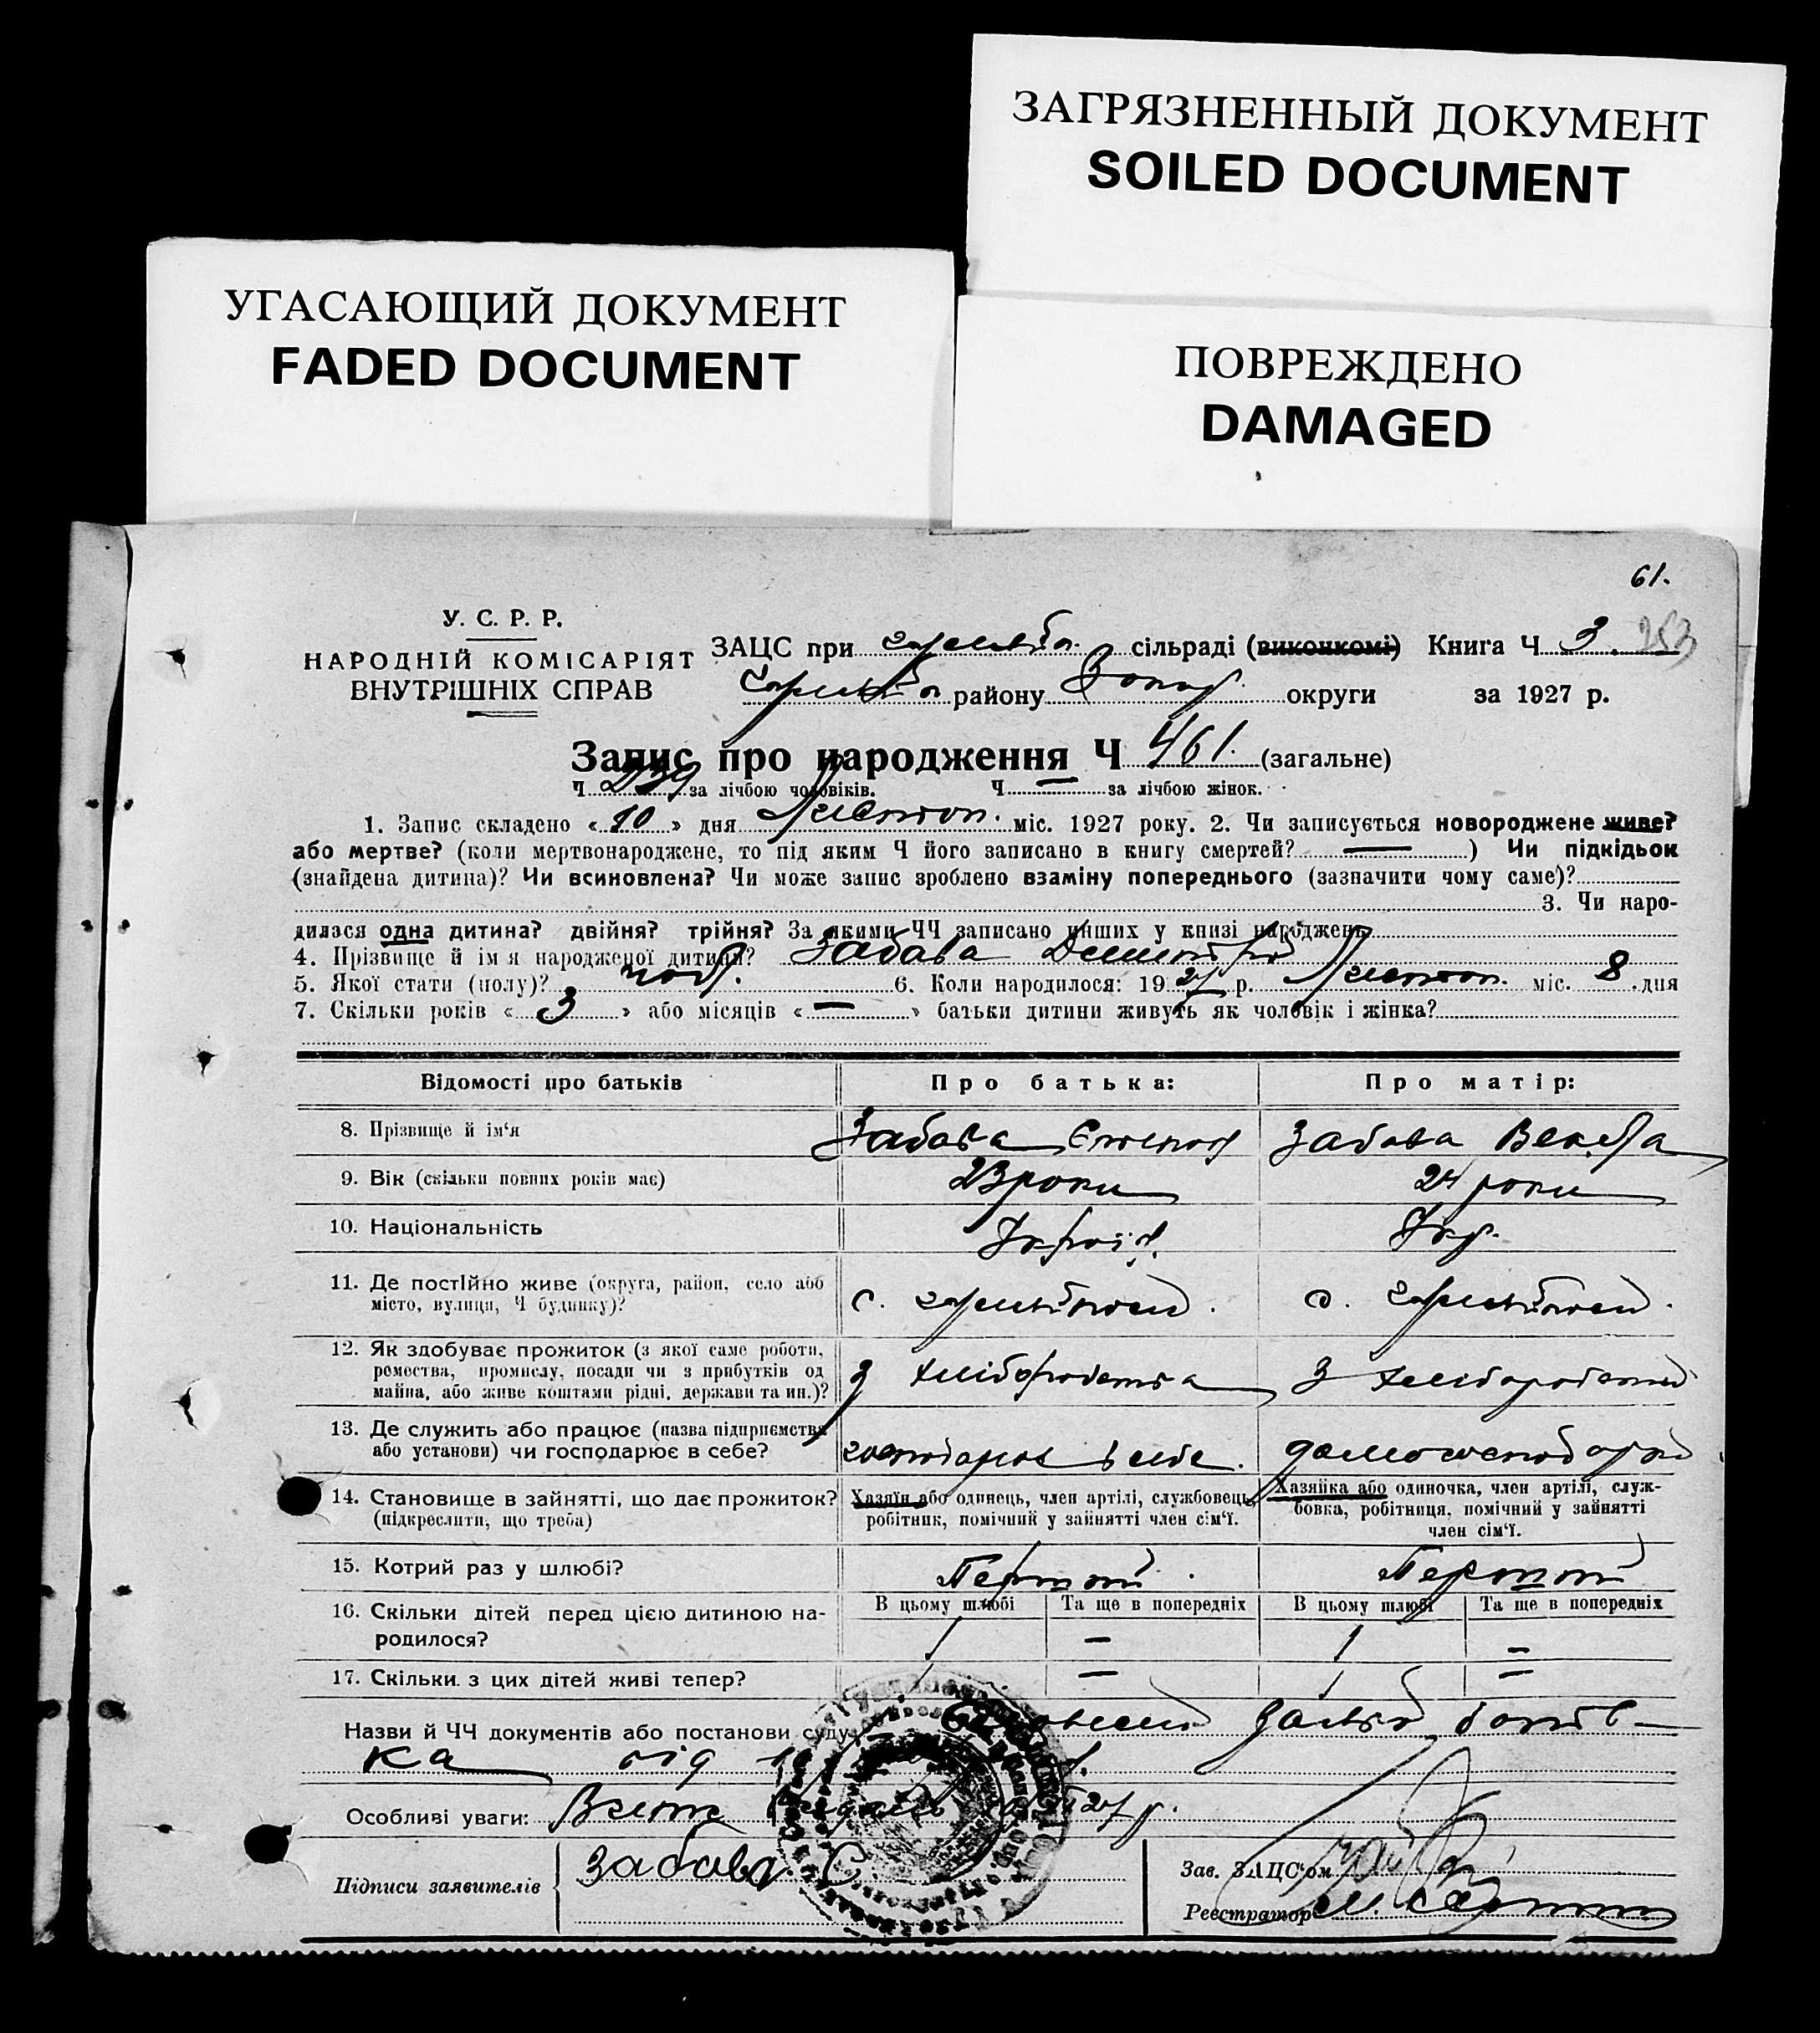 ЗАГРЯЗНЕННЫЙ ДОКУМЕНТ
SOILED DOCUMENT
УГАСАЮЩИЙ ДОКУМЕНТ
FADED DOCUMENT
ПОВРЕЖДЕНО
DAMAGED
61.
У. С. Р. Р.
НАРОДНІЙ КОМІСАРІЯТ
ВНУТРІШНІХ СПРАВ
ЗАЦС при сільраді (виконкомі) Книга Ч 3. 253
району Запор. округи за 1927 р.
Запис про народження Ч 461. (загальне)
Ч 239 за лічбою чоловіків. Ч — за лічбою жінок.
1. Запис складено « 10 » дня міс. 1927 року. 2. Чи записується новороджене живе?
або мертве? (коли мертвонароджене, то під яким Ч його записано в книгу смертей? — ) Чи підкідьок
(знайдена дитина)? Чи всиновлена? Чи може запис зроблено взаміну попереднього (зазначити чому саме)?
3. Чи наро-
дилася одна дитина? двійня? трійня? За якими ЧЧ записано инших у книзі народжень
4. Прізвище й ім'я народженої дитини? Забава Дмитрій
5. Якої стати (полу)? чол. 6. Коли народилося: 1927 р. міс. 8 дня
7. Скільки років « 3 » або місяців « — » батьки дитини живуть як чоловік і жінка?
Відомості про батьків Про батька: Про матір:
8. Прізвище й ім'я Забава Забава Векла
9. Вік (скільки повних років має) 23 роки 24 роки
10. Національність Україн. Укр.
11. Де постійно живе (округа, район, село або
місто, вулиця, Ч будинку)? с. с.
12. Як здобуває прожиток (з якої саме роботи,
ремества, промислу, посади чи з прибутків од
майна, або живе коштами рідні, держави та ин.)? З хліборобства З хліборобства
13. Де служить або працює (назва підприємства
або установи) чи господарює в себе? господарює в себе.
14. Становище в зайнятті, що дає прожиток?
(підкреслити, що треба)
Хазяїн або одинець, член артілі, службовець,
робітник, помічний у зайнятті член сім'ї.
Хазяйка або одиночка, член артілі, служ-
бовка, робітниця, помічний у зайнятті
член сім'ї.
15. Котрий раз у шлюбі? Перший Перший
16. Скільки дітей перед цією дитиною на-
родилося?
В цьому шлюбі Та ще в попередніх В цьому шлюбі Та ще в попередніх
1 — 1 —
17. Скільки з цих дітей живі тепер? 1 — 1 —
Назви й ЧЧ документів або постанови суду Заява батьк-
ка від
Особливі уваги: 27 р.
Підписи заявителів Забава С.
Зав. ЗАЦС'ом
Реєстратор